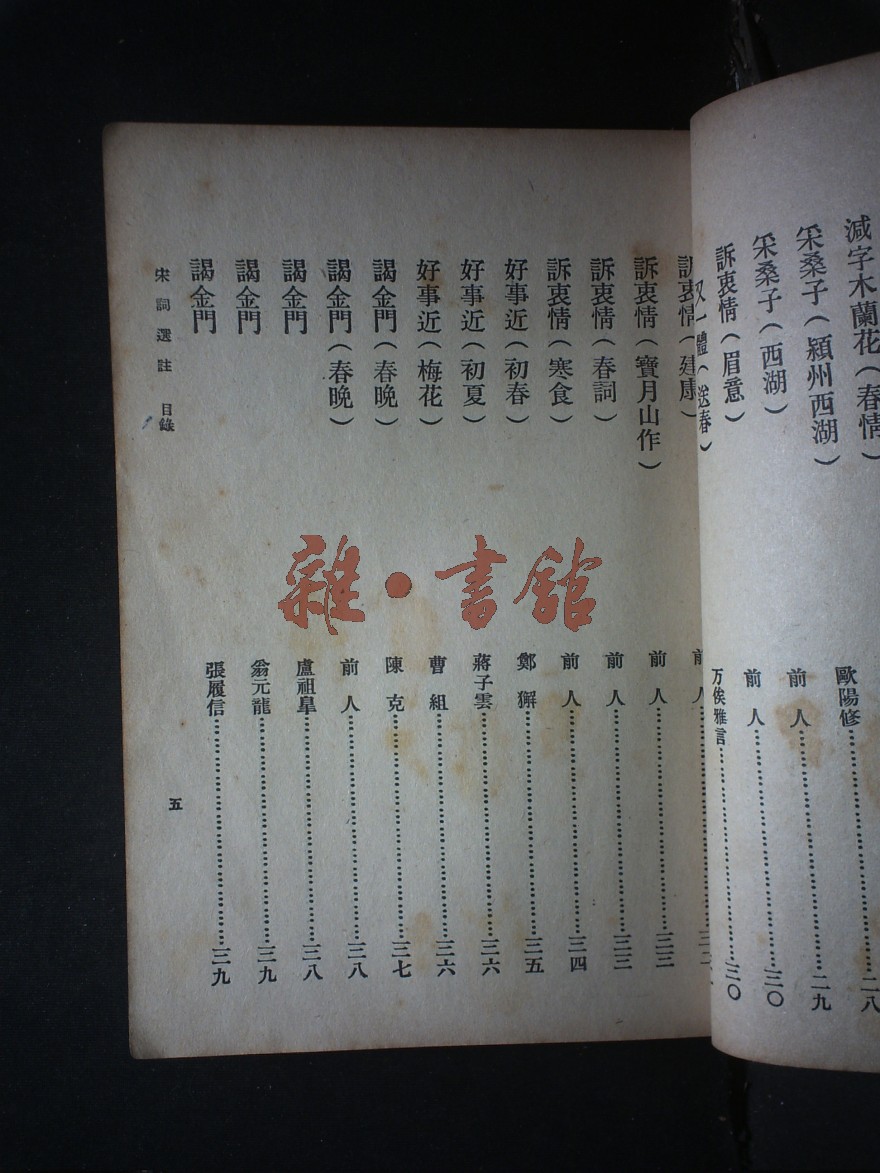 減字木蘭花（春情）　歐陽修……二八
釆桑子（穎州西湖）　前人……二九
釆桑子（西湖）　前人……三〇
訴衷情（眉意）　万俟雅言……三〇
又一體（送春）
訴衷情（建康）　前人
訴衷情（寶月山作）　前人……三三
訴衷情（春詞）　前人……三三
訴衷情（寒食）　前人……三四
好事近（初春）　鄭獬……三五
好事近（初夏）　蔣子雲……三六
好事近（梅花）　曹組……三六
謁金門（春晚）　陳克……三七
謁金門（春晚）　前人……三八
謁金門　盧祖皐……三八
謁金門　翁元龍……三九
謁金門　張履信……三九
宋詞選註　目錄　五
雜・書館